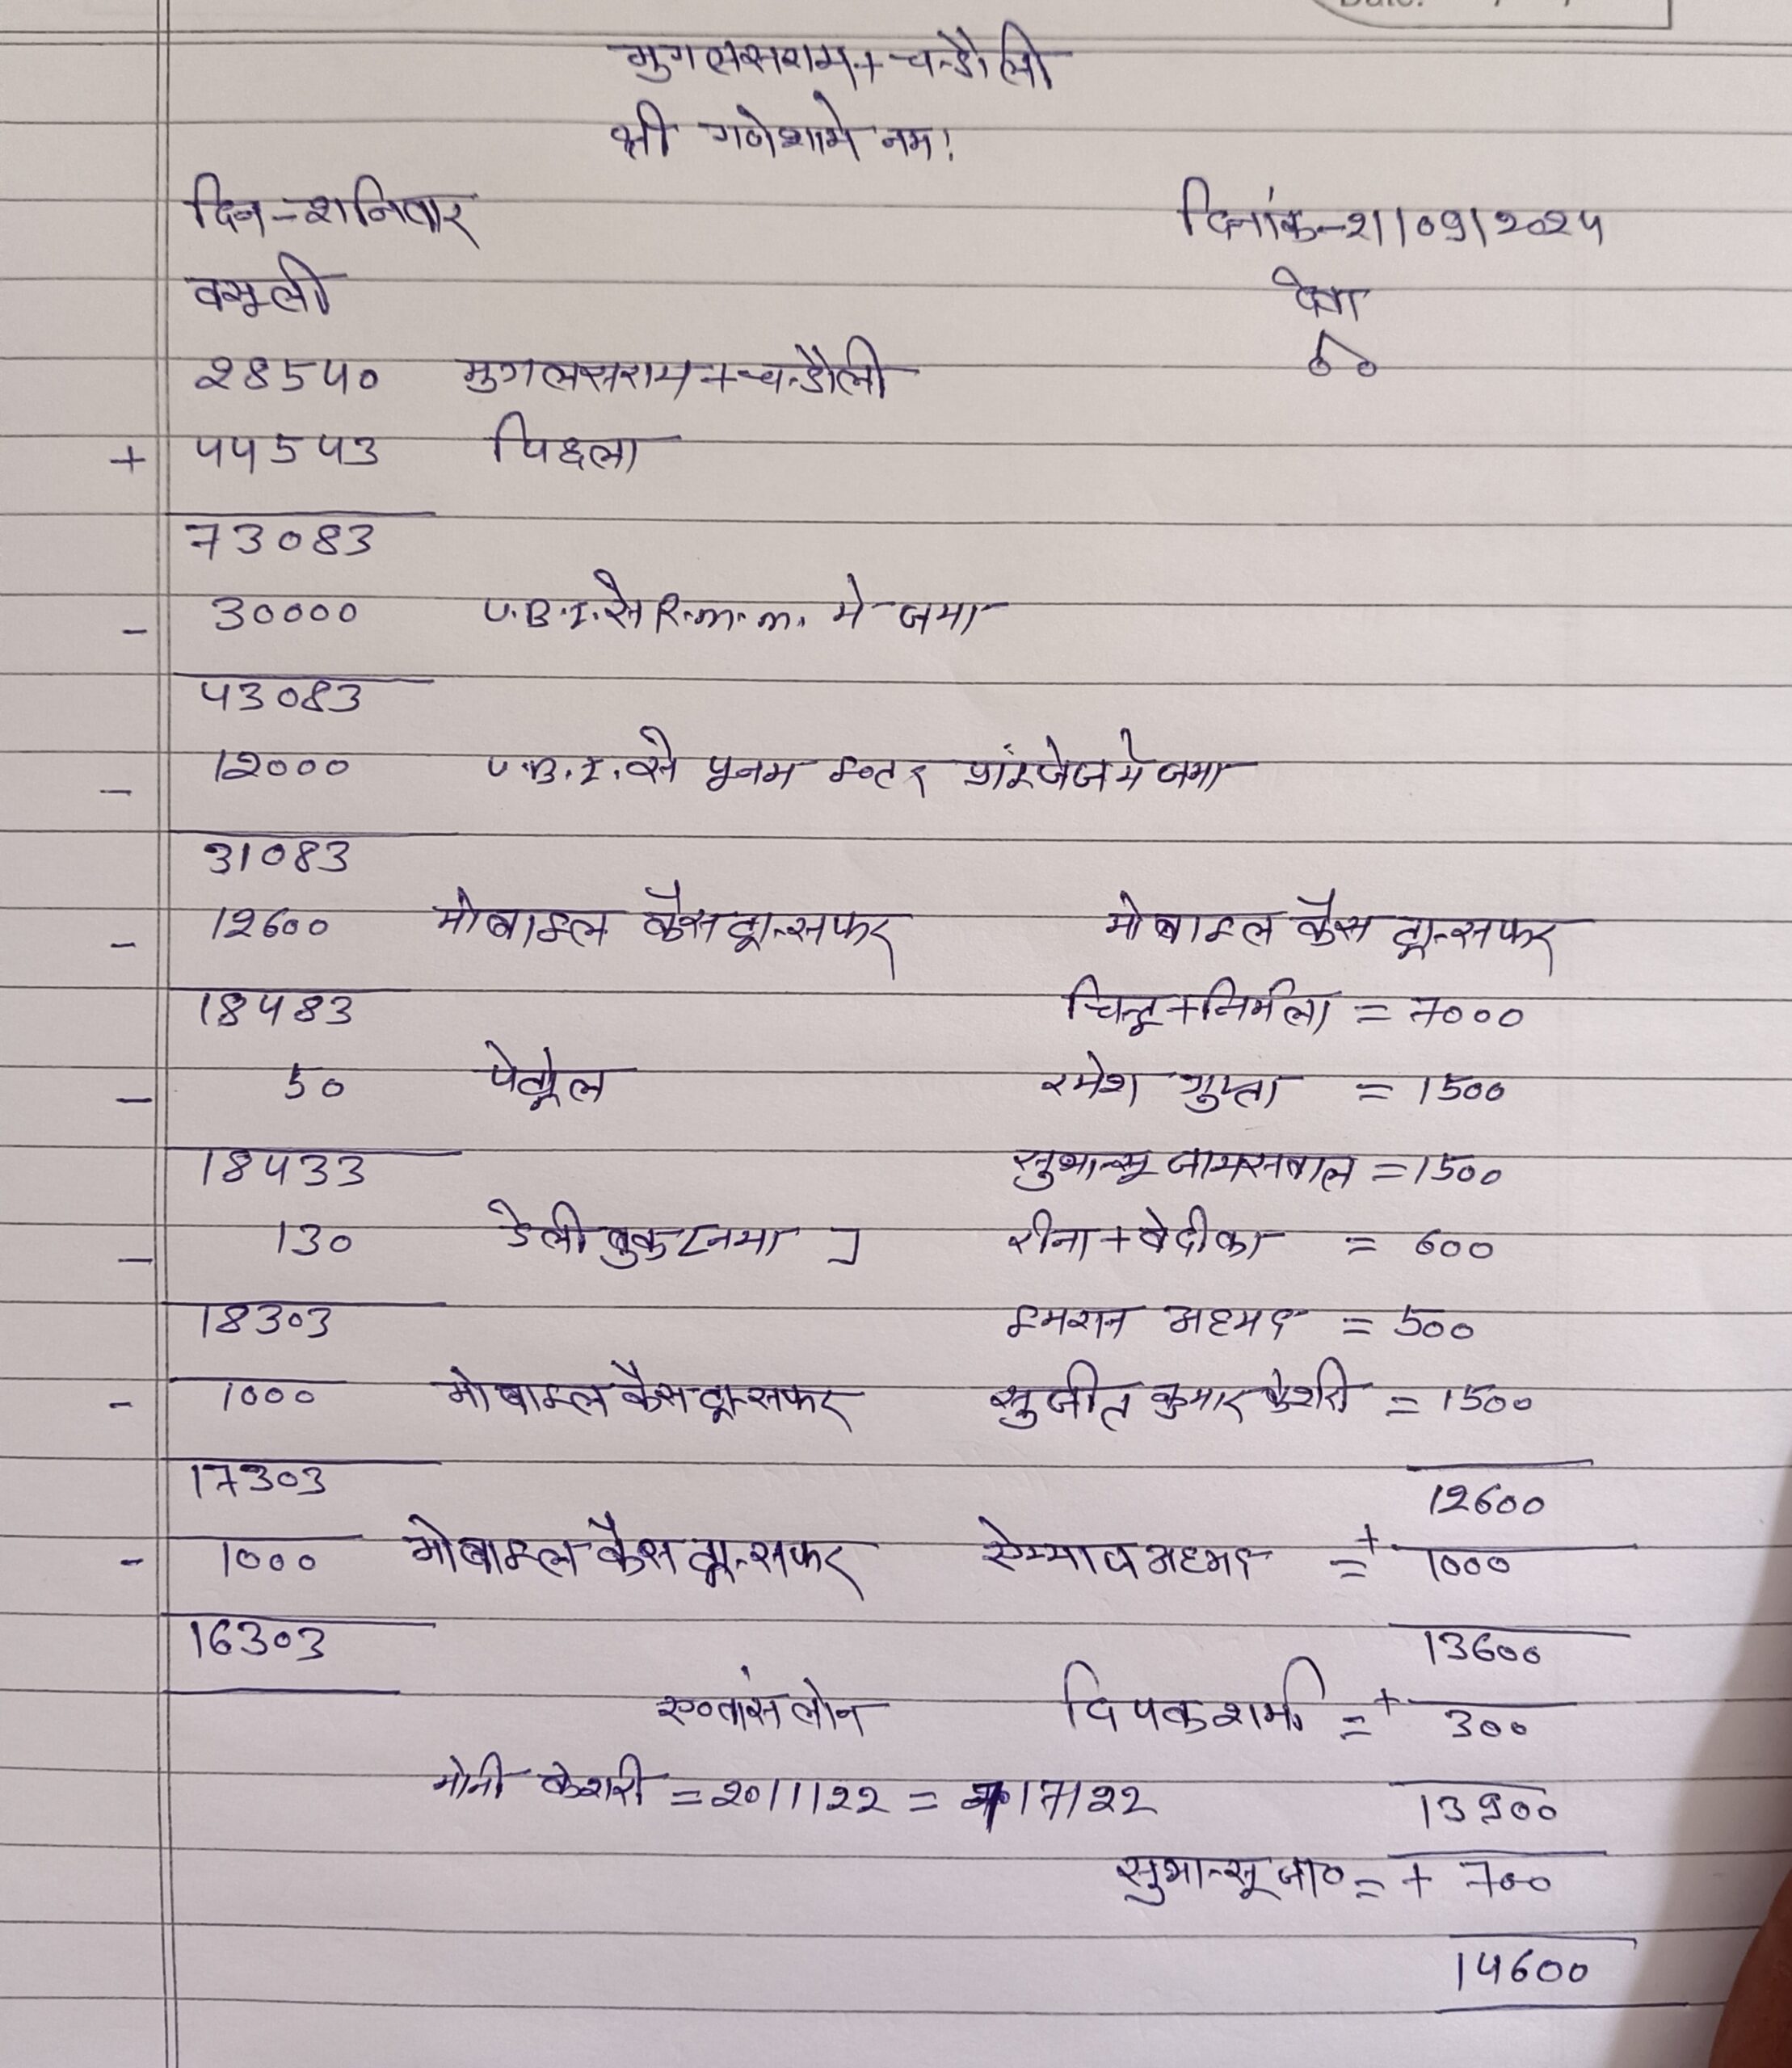 मुगलसराय + चन्डौली
श्री गणेशाये नम!
दिन-शनिवार दिनांक-21/09/2024
वसूली
28540 मुगलसराय + चन्डौली
+ 44543 पिछला
73083
- 30000 U.B.I. से R.m.m. मे जमा
43083
- 12000 U.B.I. से पूनम इन्टर प्राइजेज मे जमा
31083
- 12600 मोबाइल कैस ट्रान्सफर मोबाइल कैस ट्रान्सफर
18483 चिन्टू + निर्मला = 7000
- 50 पेट्रोल रमेश गुप्ता = 1500
18433 सुभान्सू जायसवाल = 1500
- 130 डेली बुक [नया] रीना + बेदीका = 600
18303 इमरान अहमद = 500
- 1000 मोबाइल कैस ट्रान्सफर सुजीत कुमार केशरी = 1500
17303 12600
- 1000 मोबाइल कैस ट्रान्सफर अहमद = + 1000
16303 13600
लोन दिपक शर्मा = + 300
मोनी केशरी = 20/1/22 = 7/7/22 13900
सुभान्सू जा० = + 700
14600